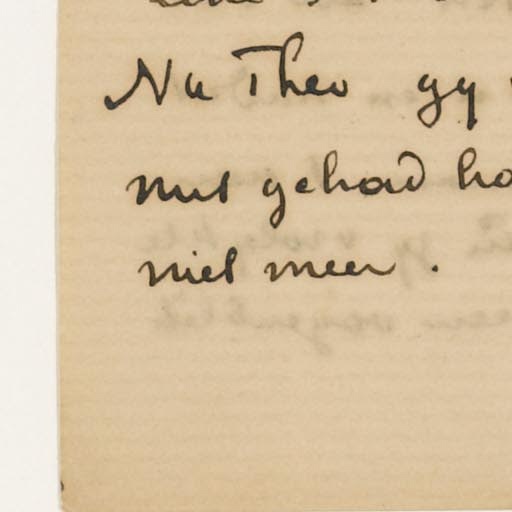 Nu Theo gy
niet gehad ha
niet meer.